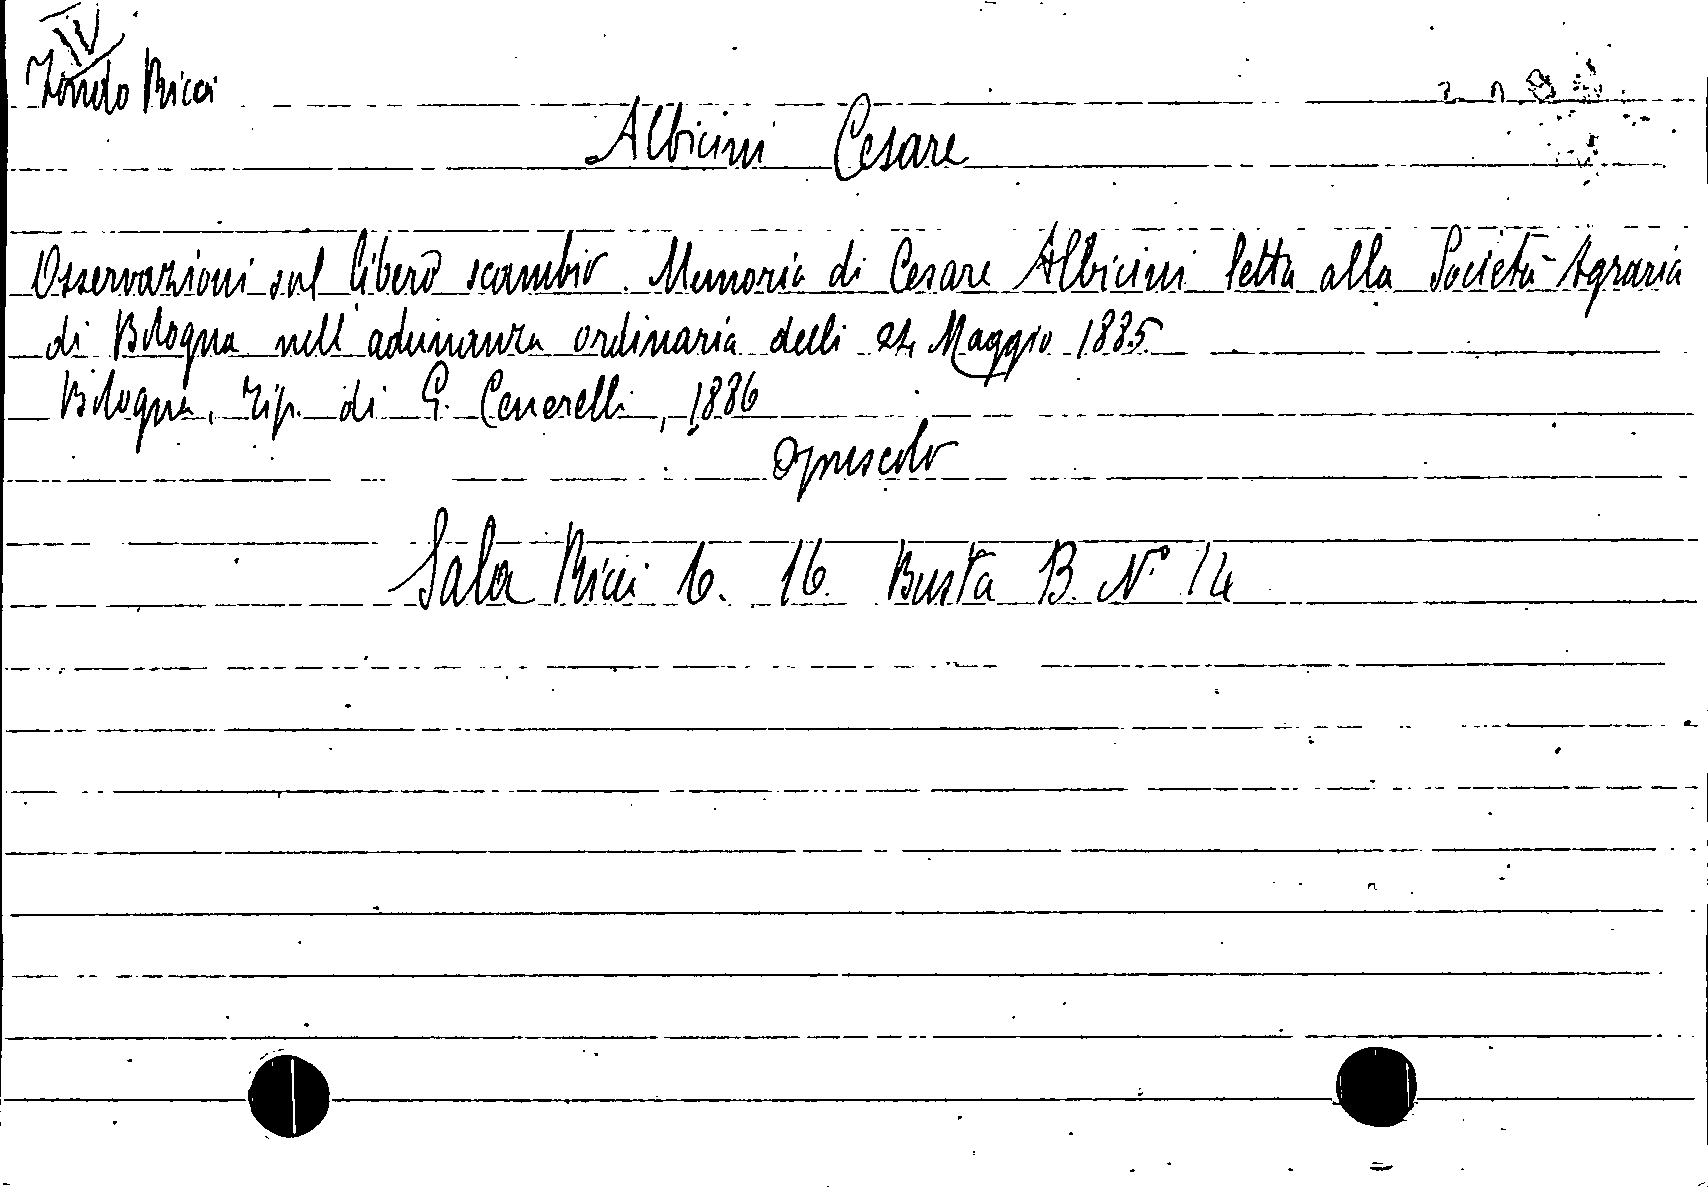 IV
Fondo Ricci
Albicini Cesare
Osservazioni sul libero scambio. Memoria di Cesare Albicini letta alla Società Agraria
di Bologna nell'adunanza ordinaria delli 24 Maggio 1885.
Bologna, Tip. di G. Cenerelli, 1886
Opuscolo
Sala Ricci 6. 16. Busta B. N° 14